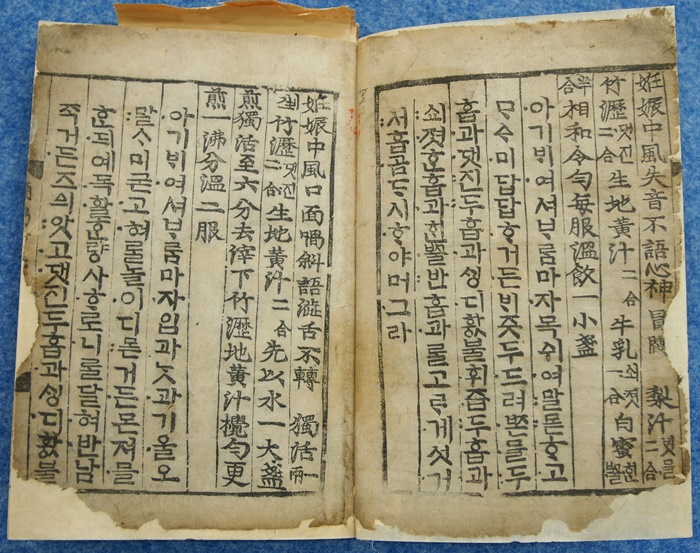 姙娠中風失音不語心神冒悶 梨汁ᄇᆡ믈二合
竹瀝댓진二合生地黃汁二合牛乳쇠졋一合白蜜ᄒᆡᆫᄢᅮᆯ
半合相和令勻每服溫飮一小盞
아기ᄇᆡ여셔ᄇᆞᄅᆞᆷ마자목쉬여말몯ᄒᆞ고
ᄆᆞᅀᆞ미답답ᄒᆞ거든ᄇᆡ즛두드려ᄧᅩᆫ믈두
홉과댓진두홉과ᄉᆡᆼ디홧불휘즙두홉과
쇠졋ᄒᆞᆫ홉과ᄒᆡᆫᄢᅮᆯ반홉과ᄅᆞᆯ고ᄅᆞ게섯거
서홉곰ᄃᆞ시ᄒᆞ야머그라
姙娠中風口面喎斜語澁舌不轉 獨活一兩
剉竹瀝댓진二合生地黃汁二合先以水一大盞
煎獨活至六分去滓下竹瀝地黃汁攪勻更
煎一沸分溫二服
아기ᄇᆡ여셔ᄇᆞᄅᆞᆷ마자입과ᄂᆞᆺ과기울오
말ᄉᆞ미굳고혀ᄅᆞᆯ놀이디몯거든몬져믈
ᄒᆞᆫ되예목활ᄒᆞᆫ량사ᄒᆞ로니ᄅᆞᆯ달혀반남
죽거든즈ᅀᅴ앗고댓진두홉과ᄉᆡᆼ디홧불